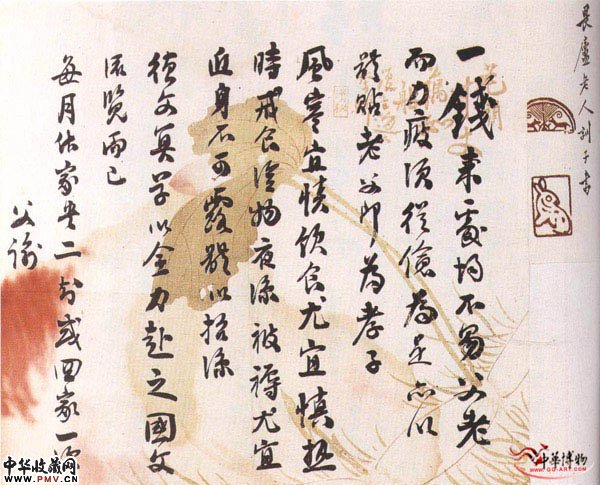 畏廬老人訓子書
一錢來處均不易父老
而力疲須從儉為是亦以
體貼老父即為孝子
風寒宜慎飲食尤宜慎熱
時戒食冷物夜涼被褥尤宜
近身不可露體以招涼
德文算學以全力赴之國文
流覽而已
每月作家書二封或四家一
父諭
中华收藏网
WWW.PMV.CN
中華博物
www.GG-ART.COM